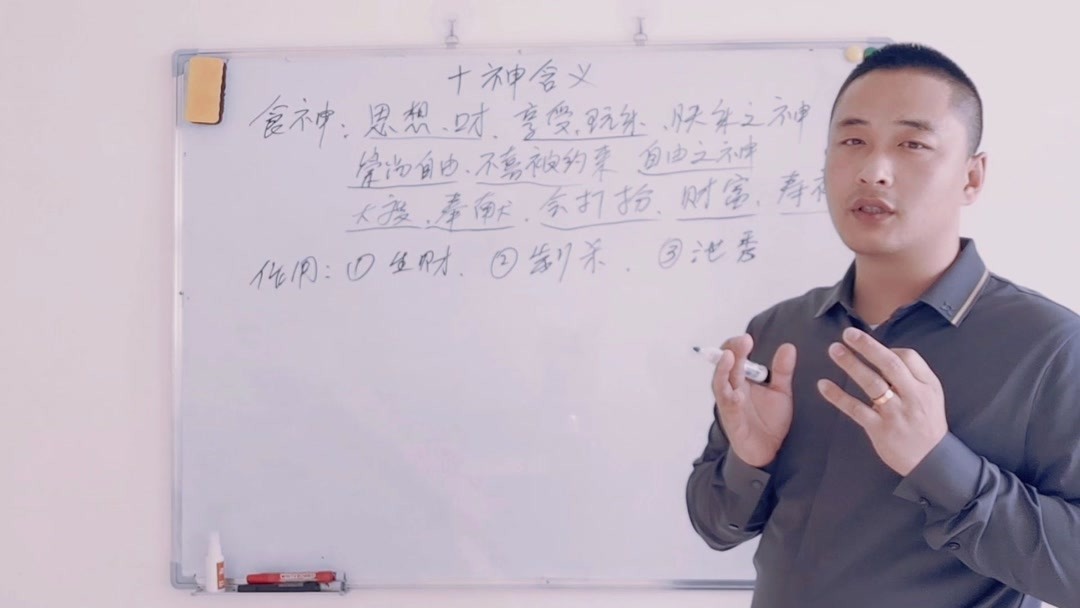 十神含义
食神：思想、口才、享受、玩乐、快乐之神
崇尚自由、不喜被约束 自由之神
大方、奉献、会打扮、财富、寿
作用：① 生财. ② 制杀. ③ 泄秀